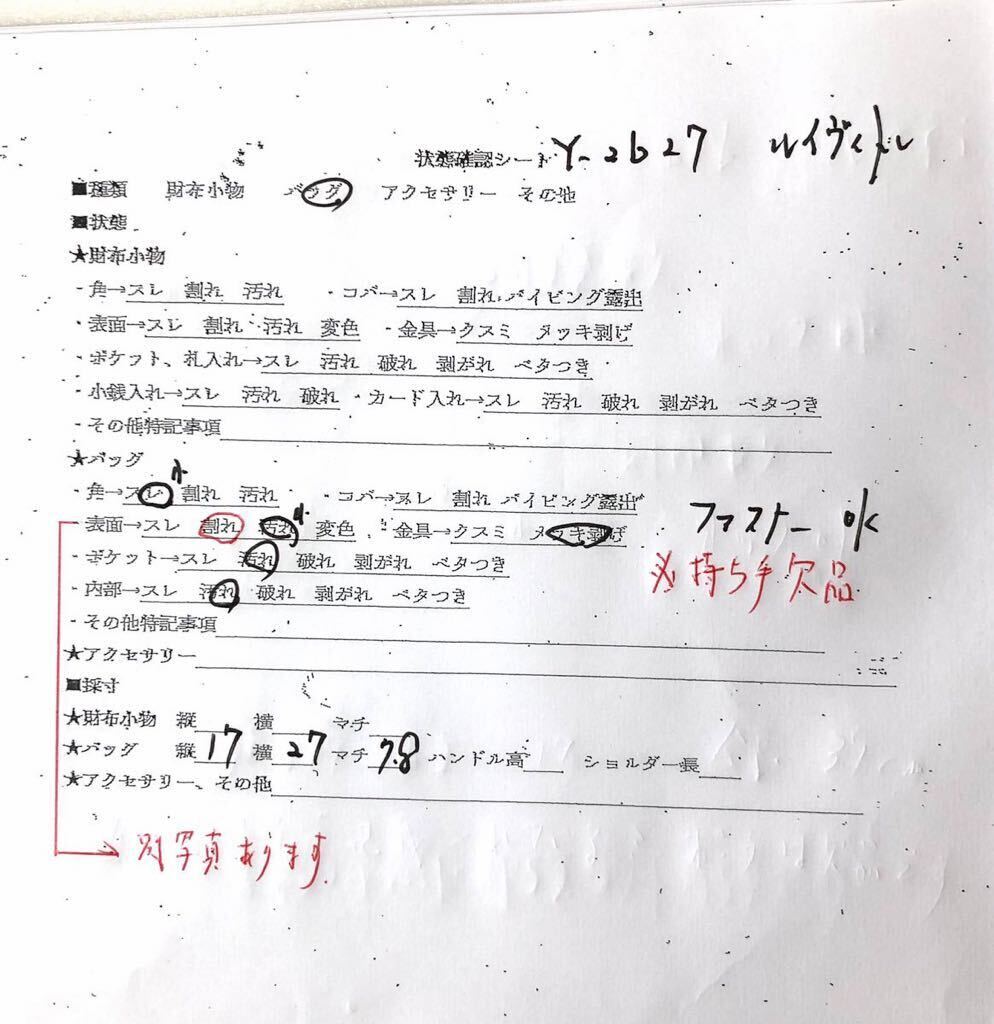 状態確認シート Y-2b27 ルイヴィトン
■種類 財布小物 バッグ アクセサリー その他
■状態
★財布小物
・角→スレ 割れ 汚れ ・コバ→スレ 割れ パイピング露出
・表面→スレ 割れ 汚れ 変色 ・金具→クスミ メッキ剥げ
・ポケット、札入れ→スレ 汚れ 破れ 剥がれ ベタつき
・小銭入れ→スレ 汚れ 破れ ・カード入れ→スレ 汚れ 破れ 剥がれ ベタつき
・その他特記事項
★バッグ
小
・角→スレ 割れ 汚れ ・コバ→スレ 割れ パイピング露出
小
・表面→スレ 割れ 汚れ 変色 ・金具→クスミ メッキ剥げ
ファスナー ok
・ポケット→スレ 汚れ 破れ 剥がれ ベタつき
※持ち手欠品
・内部→スレ 汚れ 破れ 剥がれ ベタつき
・その他特記事項
★アクセサリー
■採寸
★財布小物 縦 横 マチ
★バッグ 縦17 横27 マチ7.8 ハンドル高 ショルダー長
★アクセサリー、その他
別写真あります